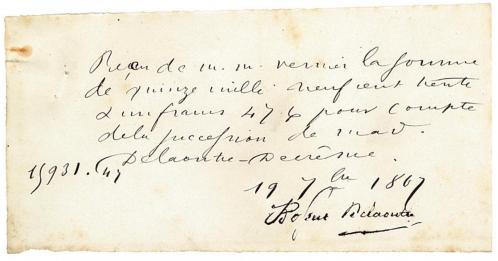 Reçu de m. m. vernier la somme
de quinze mille neuf cent trente
& un francs 47 c pour Compte
de la succession de mad.
Delaoutre-Decresme.
15931.47
19 7bre 1867
Delaoutre